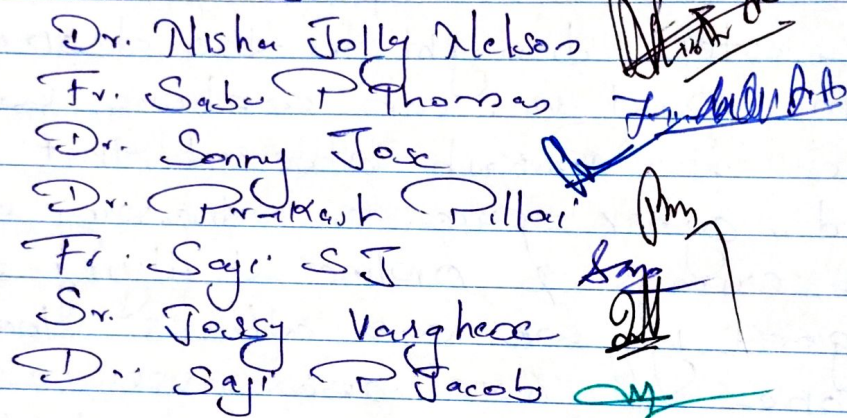 Dr. Nisha Jolly Nelson
Fr. Sabu P Thomas
Dr. Sonny Jose
Dr. Prakash Pillai
Fr. Saji SJ
Sr. Jossy Varghese
Dr. Saji P Jacob